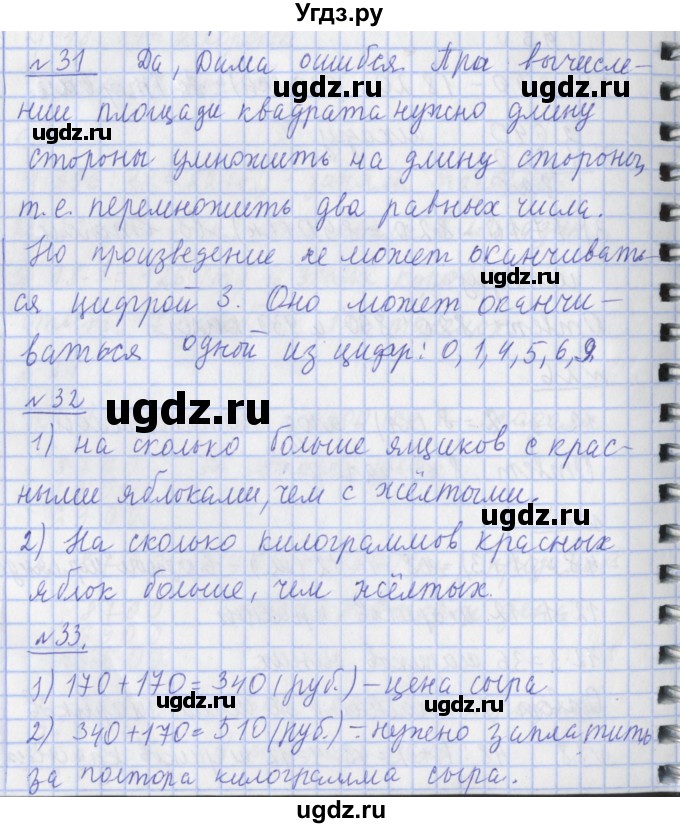 Угдз.ру
№31 Да, Дима ошибся. При вычисле-
нии площади квадрата нужно длину
ugdz.ru ugdz.ru
стороны умножить на длину стороны,
ugdz.ru
т.е. перемножить два равных числа.
Но произведение не может оканчивать-
ugdz.ru
ся цифрой 3. Оно может оканчи-
ваться одной из цифр: 0, 1, 4, 5, 6, 9.
№32
ugdz.ru
1) на сколько больше ящиков с крас-
ными яблоками, чем с жёлтыми.
ugdz.ru
2) На сколько килограммов красных
яблок больше, чем жёлтых.
ugdz.ru
№33.
1) 170+170=340 (руб.) – цена сыра
ugdz.ru
2) 340+170=510 (руб.) – нужно заплатить
ugdz.ru
за полтора килограмма сыра.
ugdz.ru